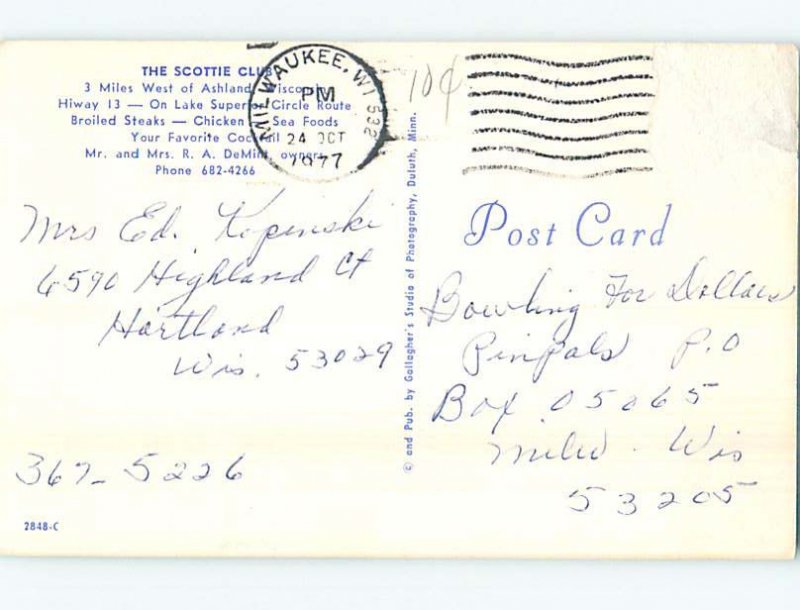 THE SCOTTIE CLUB
3 Miles West of Ashland, Wisconsin
Hiway 13 — On Lake Superior Circle Route
Broiled Steaks — Chicken — Sea Foods
Your Favorite Cocktail
Mr. and Mrs. R. A. DeMint, owners
Phone 682-4266
MILWAUKEE, WI 532
PM
24 OCT
1977
10¢
Mrs Ed. Kopinski
6590 Highland Ct
Hartland
Wis. 53029
367-5226
2848-C
© and Pub. by Gallagher's Studio of Photography, Duluth, Minn.
Post Card
Bowling For Dollars
Pinpals P.O
Box 05065
Milw. Wis
53205